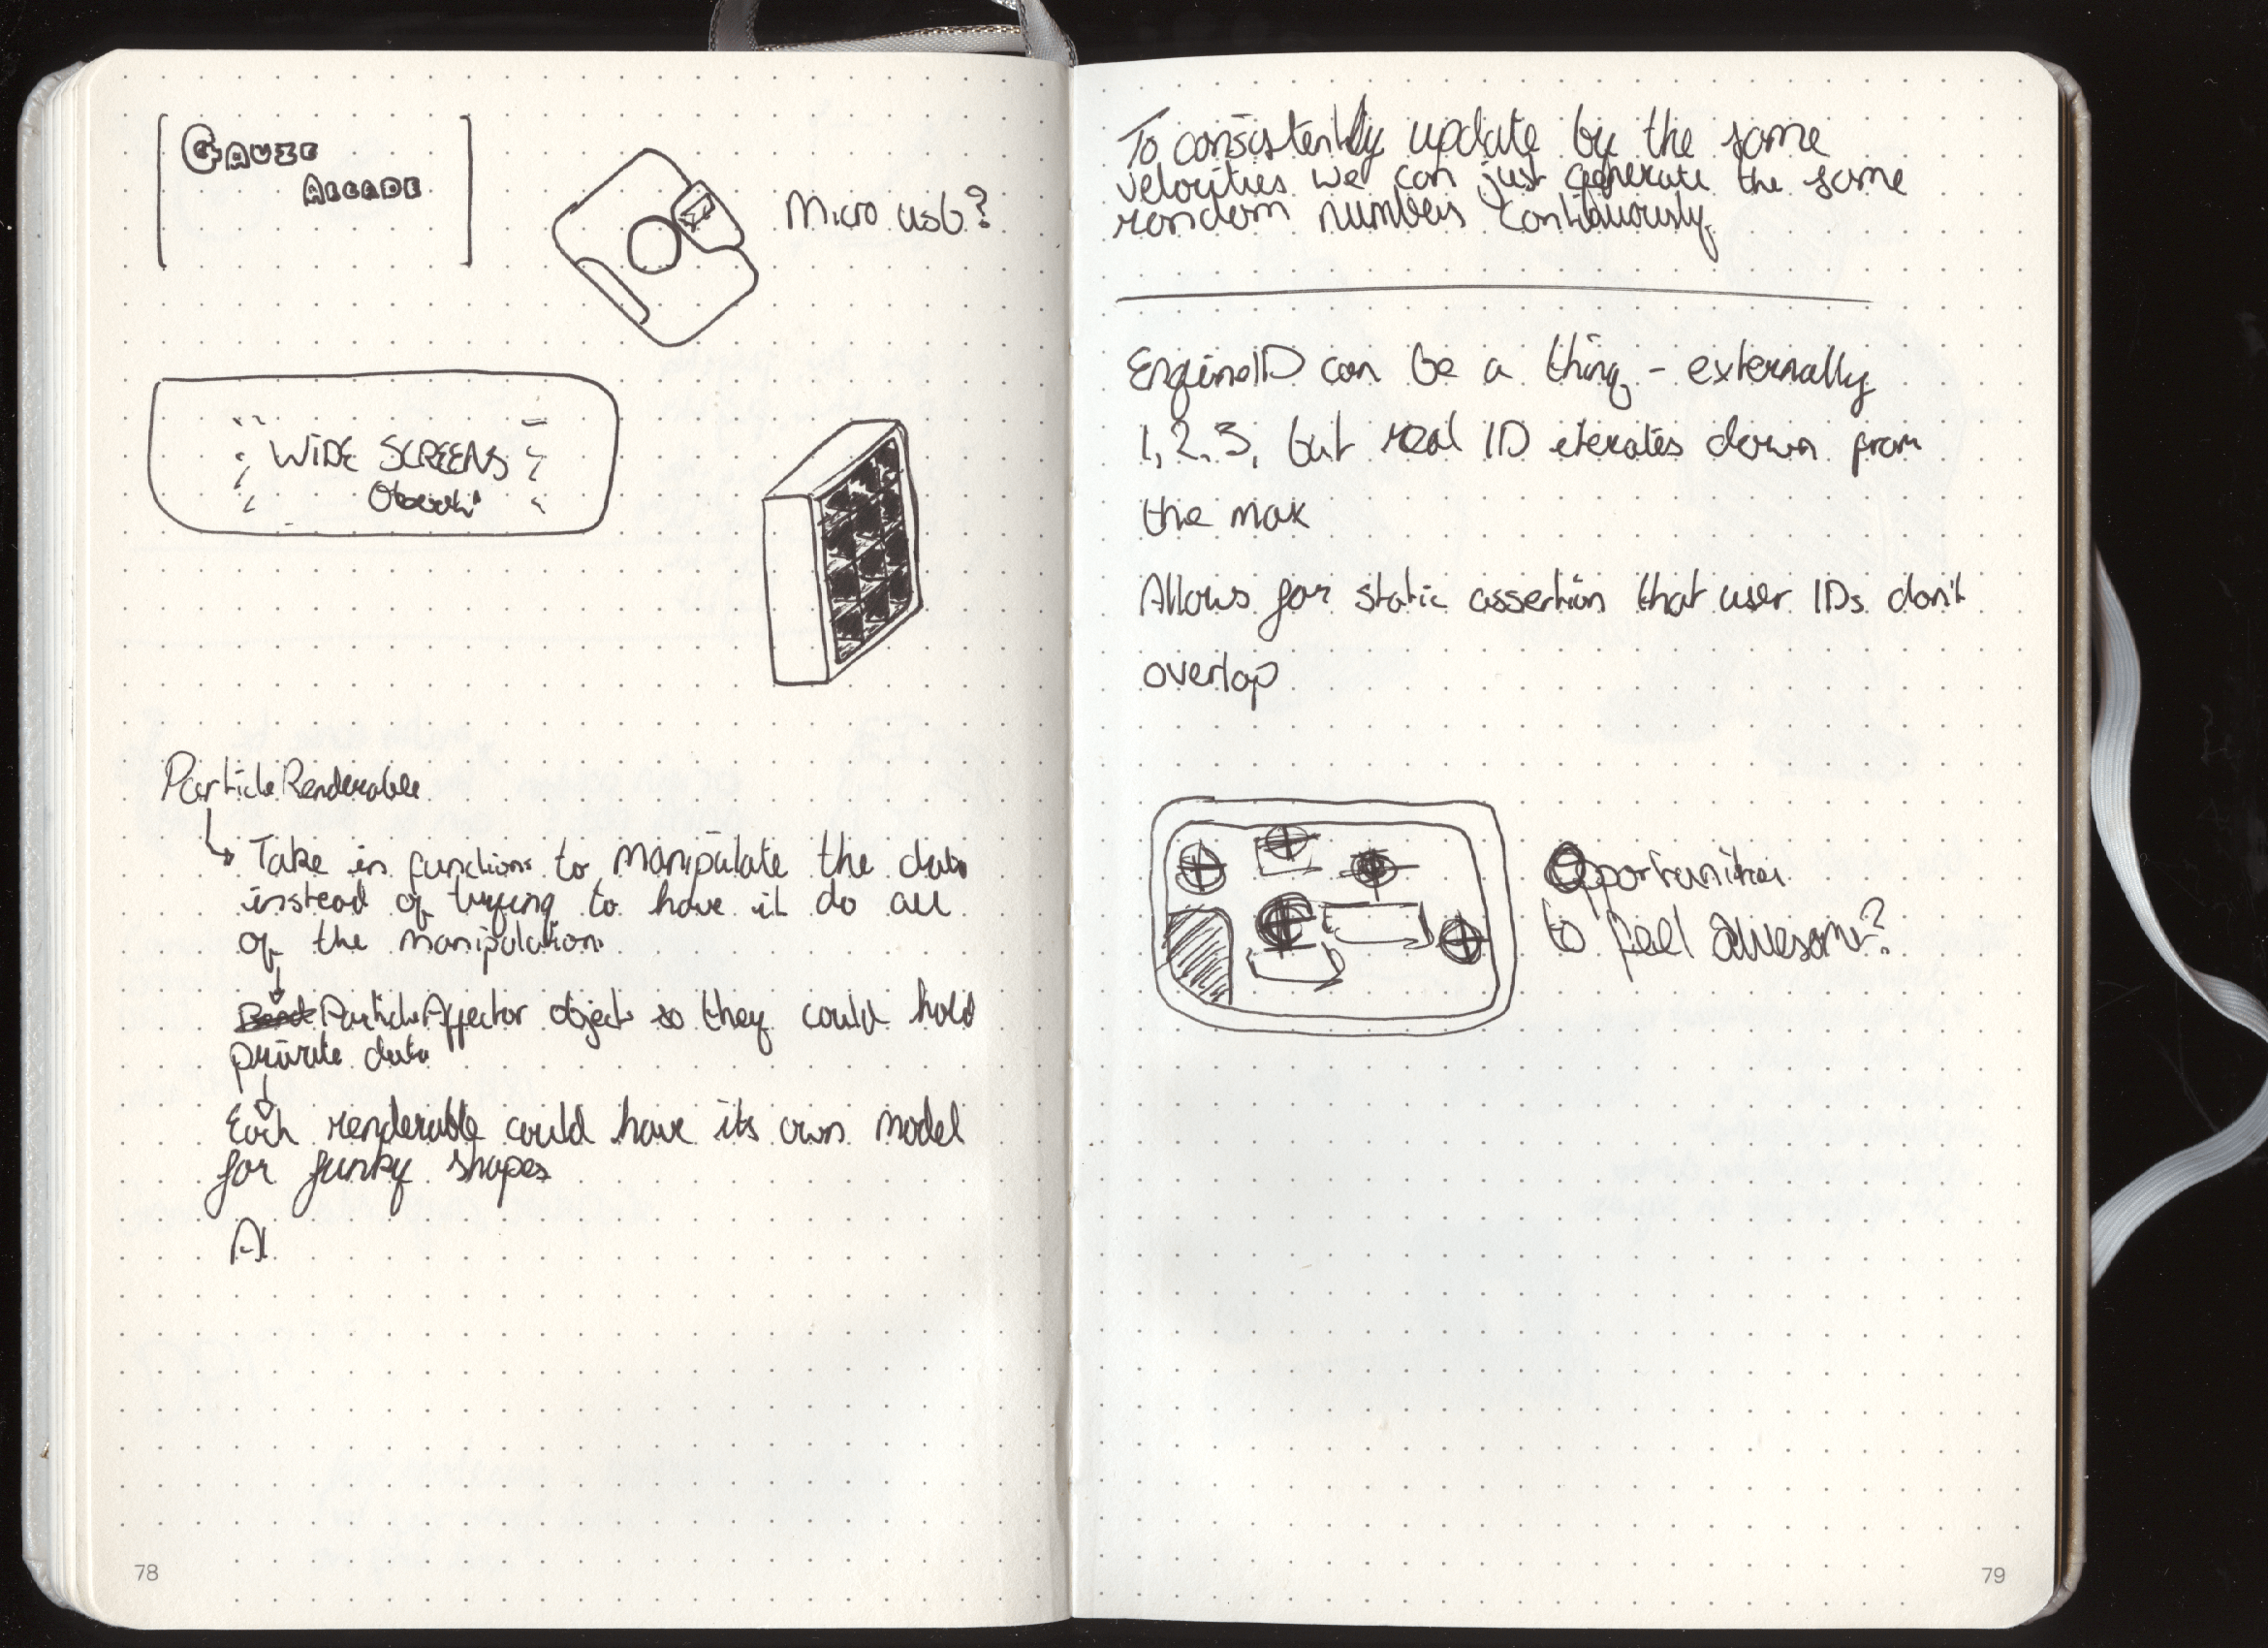 GAUZE
ARCADE
Micro usb?
WIDE SCREENS
ParticleRenderable
Take in functions to manipulate the data
instead of trying to have it do all
of the manipulation
ParticleAffector objects so they could hold
private data
Each renderable could have its own model
for funky shapes
Al
78
To consistently update by the same
velocities we can just generate the same
random numbers continuously
EngineID can be a thing - externally
1, 2, 3, but real ID iterates down from
the max
Allows for static assertion that user IDs don't
overlap
Opportunities
to feel awesome?
79